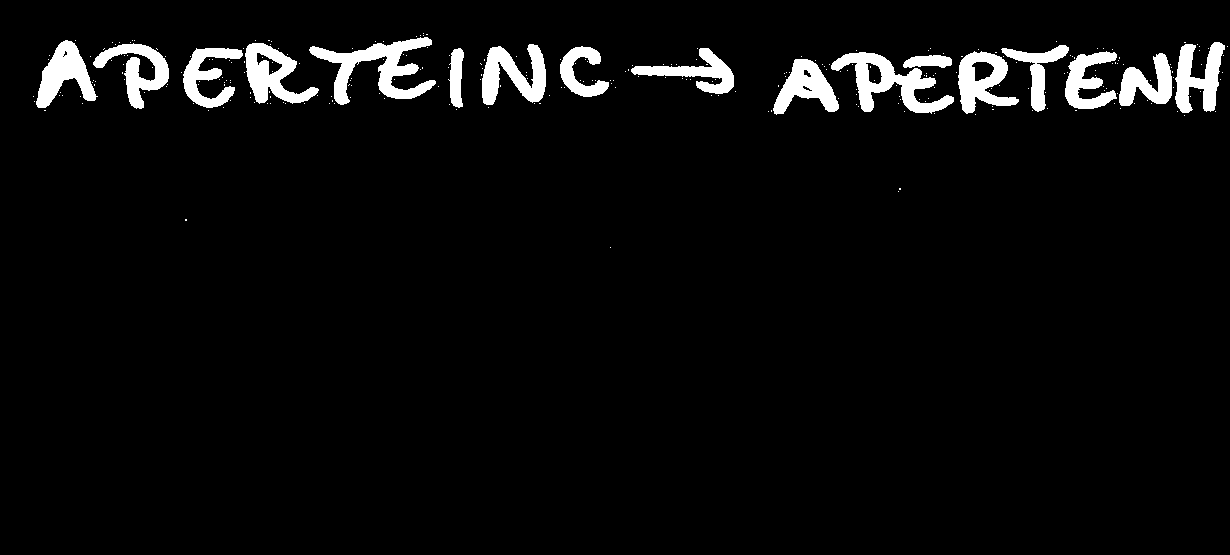 APERTEINC → APERTENH